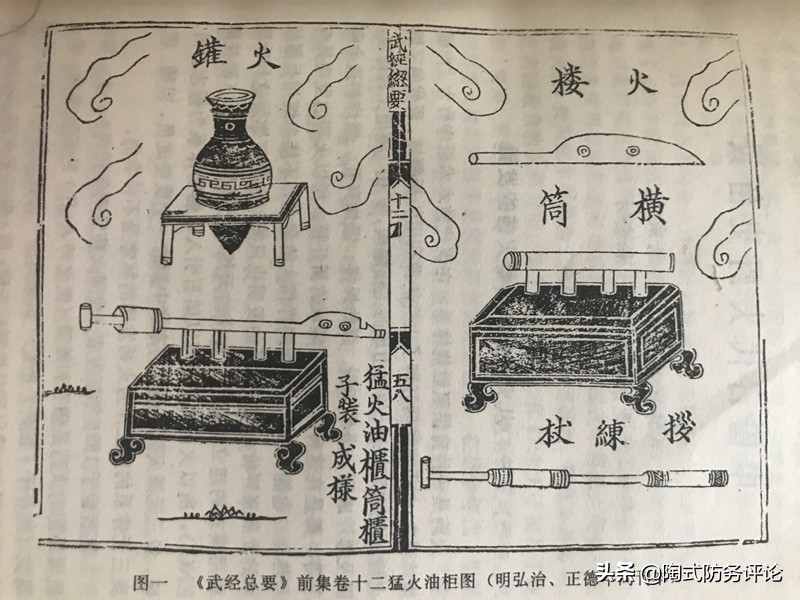 火楼
横筒
拶練杖
武經緫要
十二
五八
火罐
猛火油櫃筒櫃
子裝成樣
图一 《武经总要》前集卷十二猛火油柜图（明弘治、正德
头条 @陶式防务评论